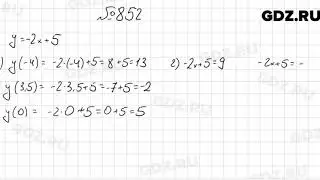 GDZ.RU
№852
y=-2x+5
) y(-4) = -2·(-4)+5=8+5=13 2) -2x+5=9 -2x+5=-
y(3,5) = -2·3,5+5=-7+5=-2
y(0) = -2·0+5=0+5=5
GDZ.RU